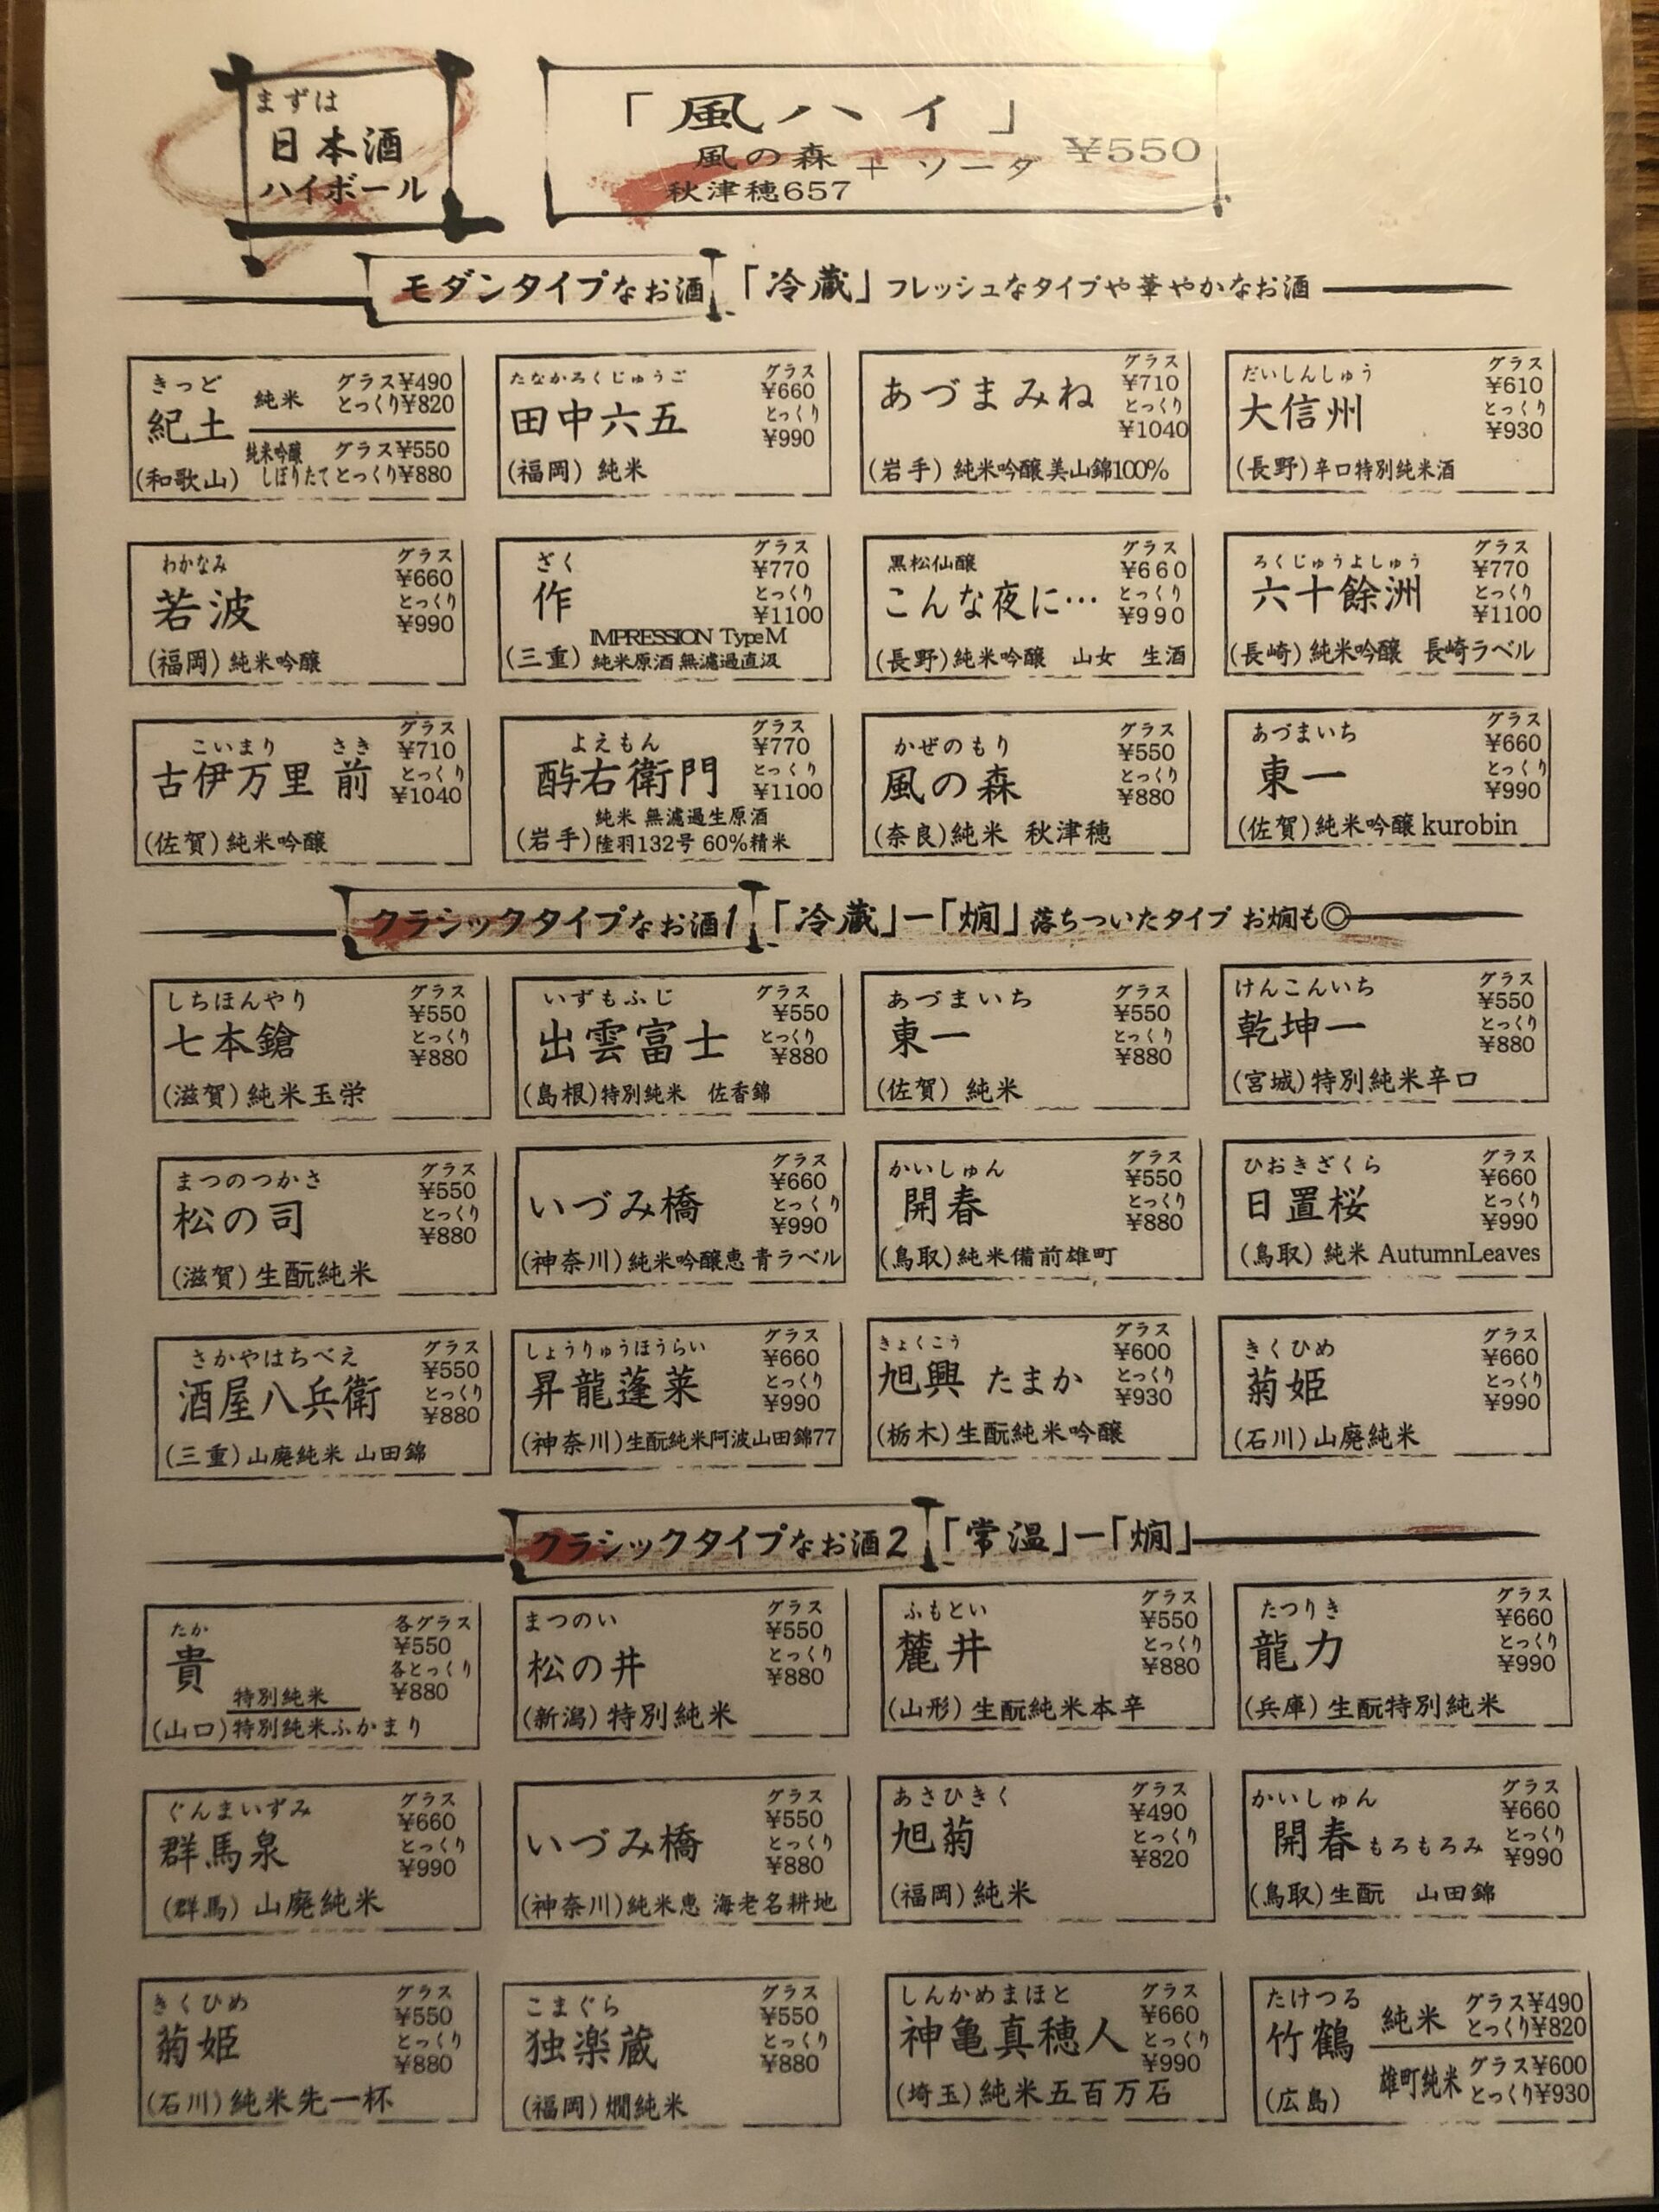 まずは
日本酒
ハイボール
「風ハイ」
風の森
秋津穂657
+ ソーダ ¥550
モダンタイプなお酒 「冷蔵」フレッシュなタイプや華やかなお酒
きっど
紀土
純米 グラス¥490
とっくり¥820
純米吟醸 グラス¥550
しぼりたて とっくり¥880
(和歌山)
たなかろくじゅうご
田中六五
グラス
¥660
とっくり
¥990
(福岡) 純米
あづまみね
グラス
¥710
とっくり
¥1040
(岩手) 純米吟醸美山錦100%
だいしんしゅう
大信州
グラス
¥610
とっくり
¥930
(長野) 辛口特別純米酒
わかなみ
若波
グラス
¥660
とっくり
¥990
(福岡) 純米吟醸
ざく
作
グラス
¥770
とっくり
¥1100
IMPRESSION Type M
(三重) 純米原酒 無濾過直汲
黒松仙醸
こんな夜に…
グラス
¥660
とっくり
¥990
(長野) 純米吟醸 山女 生酒
ろくじゅうよしゅう
六十餘洲
グラス
¥770
とっくり
¥1100
(長崎) 純米吟醸 長崎ラベル
こいまり さき
古伊万里 前
グラス
¥710
とっくり
¥1040
(佐賀) 純米吟醸
よえもん
酉与右衛門
グラス
¥770
とっくり
¥1100
純米 無濾過生原酒
(岩手) 陸羽132号 60%精米
かぜのもり
風の森
グラス
¥550
とっくり
¥880
(奈良) 純米 秋津穂
あづまいち
東一
グラス
¥660
とっくり
¥990
(佐賀) 純米吟醸 kurobin
クラシックタイプなお酒1 「冷蔵」ー「燗」落ちついたタイプ お燗も◎
しちほんやり
七本鎗
グラス
¥550
とっくり
¥880
(滋賀) 純米玉栄
いずもふじ
出雲富士
グラス
¥550
とっくり
¥880
(島根) 特別純米 佐香錦
あづまいち
東一
グラス
¥550
とっくり
¥880
(佐賀) 純米
けんこんいち
乾坤一
グラス
¥550
とっくり
¥880
(宮城) 特別純米辛口
まつのつかさ
松の司
グラス
¥550
とっくり
¥880
(滋賀) 生酛純米
いづみ橋
グラス
¥660
とっくり
¥990
(神奈川) 純米吟醸恵 青ラベル
かいしゅん
開春
グラス
¥550
とっくり
¥880
(鳥取) 純米備前雄町
ひおきざくら
日置桜
グラス
¥660
とっくり
¥990
(鳥取) 純米 AutumnLeaves
さかやはちべえ
酒屋八兵衛
グラス
¥550
とっくり
¥880
(三重) 山廃純米 山田錦
しょうりゅうほうらい
昇龍蓬莱
グラス
¥660
とっくり
¥990
(神奈川) 生酛純米阿波山田錦77
きょくこう
旭興 たまか
グラス
¥600
とっくり
¥930
(栃木) 生酛純米吟醸
きくひめ
菊姫
グラス
¥660
とっくり
¥990
(石川) 山廃純米
クラシックタイプなお酒2 「常温」ー「燗」
たか
貴
各グラス
¥550
各とっくり
¥880
特別純米
(山口) 特別純米ふかまり
まつのい
松の井
グラス
¥550
とっくり
¥880
(新潟) 特別純米
ふもとい
麓井
グラス
¥550
とっくり
¥880
(山形) 生酛純米本辛
たつりき
龍力
グラス
¥660
とっくり
¥990
(兵庫) 生酛特別純米
ぐんまいずみ
群馬泉
グラス
¥660
とっくり
¥990
(群馬) 山廃純米
いづみ橋
グラス
¥550
とっくり
¥880
(神奈川) 純米恵 海老名耕地
あさひきく
旭菊
グラス
¥490
とっくり
¥820
(福岡) 純米
かいしゅん
開春 もろもろみ
グラス
¥660
とっくり
¥990
(鳥取) 生酛 山田錦
きくひめ
菊姫
グラス
¥550
とっくり
¥880
(石川) 純米先一杯
こまぐら
独楽蔵
グラス
¥550
とっくり
¥880
(福岡) 燗純米
しんかめまほと
神亀真穂人
グラス
¥660
とっくり
¥990
(埼玉) 純米五百万石
たけつる
竹鶴
純米 グラス¥490
とっくり¥820
雄町純米 グラス¥600
とっくり¥930
(広島)